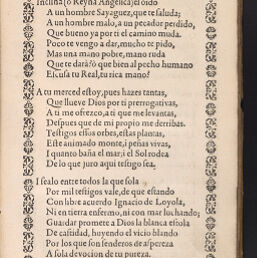 Inclina (o Reyna Angelica) el oido
A un hombre Sayaguez, que te saluda;
A un hombre malo, a un pecador perdido,
Que bueno ya por ti el camino muda.
Poco te vengo a dar, mucho te pido,
Mas una mano pobre, mano ruda
Que te darà? ò que bien al pecho humano
Escusa tu Real, tu rica mano?
A tu merced estoy, pues hazes tantas,
Que llueve Dios por ti prerrogativas,
A ti me ofrezco, a ti que me levantas,
Despues que de mi propio me derribas.
Testigos essos orbes, estas plantas,
Este animado monte, i peñas vivas,
I quanto baña el mar; i el Sol rodea
De lo que juro aqui testigo sea.
I sealo entre todos la que sola
Por mil testigos vale, de que estando
Con libre acuerdo Ignacio de Loyola,
Ni en tierra enfermo, ni con mar luchando;
Guardar promete a Dios la blanca estola
De castidad, huyendo el vicio blando
Por los que son senderos de aspereza
A sola devocion de tu pureza.